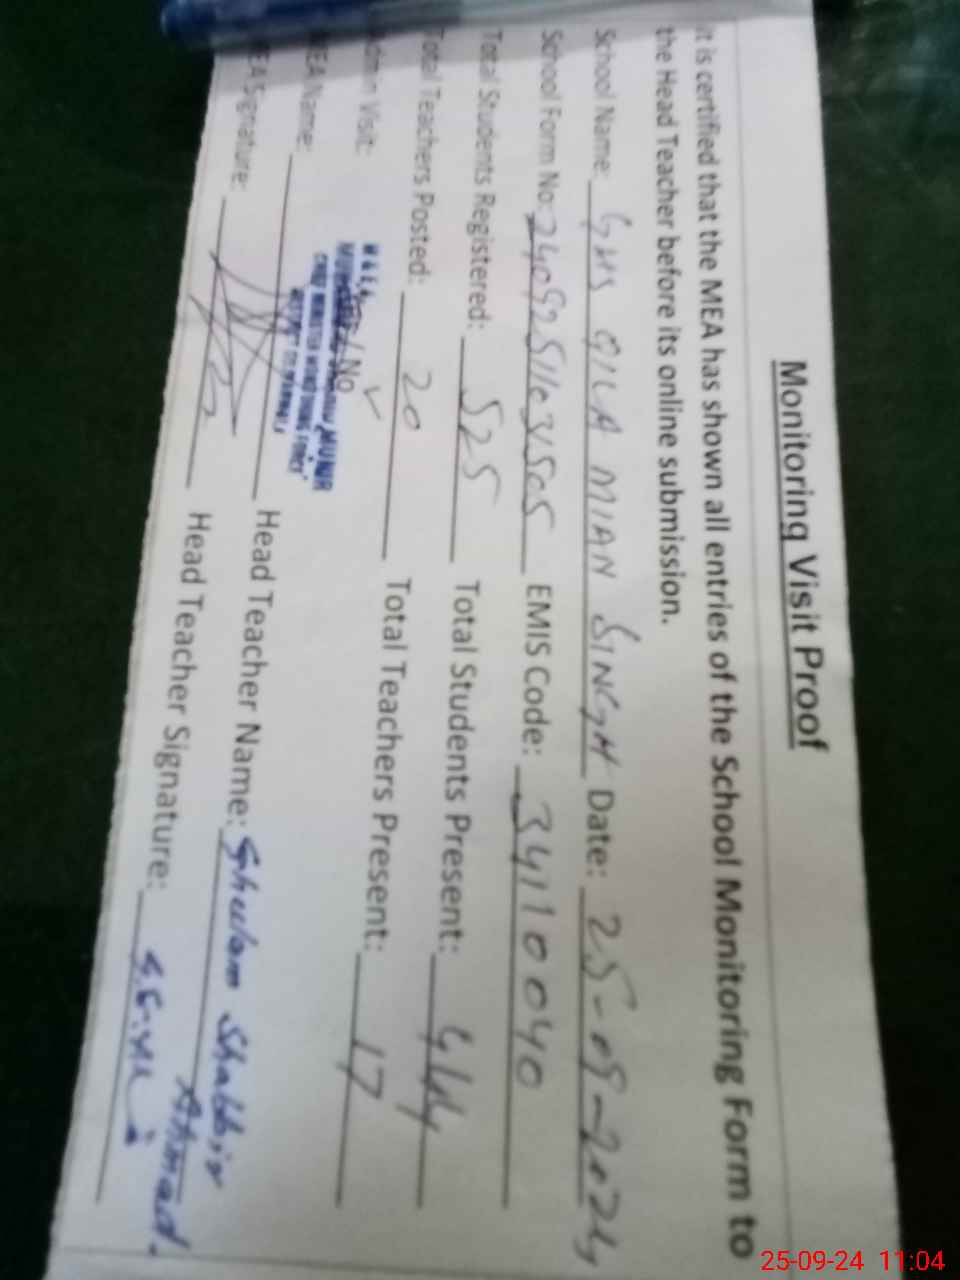 Monitoring Visit Proof
It is certified that the MEA has shown all entries of the School Monitoring Form to
the Head Teacher before its online submission.
School Name: GHS QILA MIAN SINGH Date: 25-09-2024
School Form No: EMIS Code: 34110040
Total Students Registered: 525 Total Students Present: 444
Total Teachers Posted: 20 Total Teachers Present: 17
Admin Visit: / No ✓
MEA Name: MUNIR Head Teacher Name: Ghulam Shabbir Ahmad.
CHIEF MINISTER MONITORING FORCE
MEA Signature: Head Teacher Signature:
25-09-24 11:04